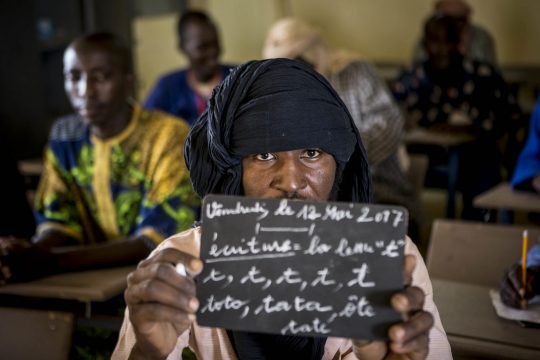 Vendredi le 12 Mai 2017
écriture = la lettre "t"
t, t, t, t, t
toto, tata, ôté
tate